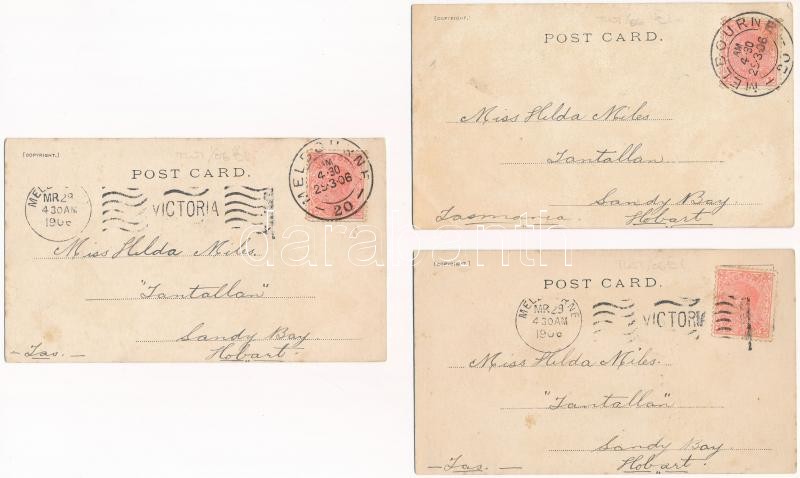 [COPYRIGHT.]
POST CARD.
MELBOURNE
MR 29
4 30 AM
1906
VICTORIA
MELBOURNE
AM
4·30
29·3·06
20
Miss Hilda Miles.
"Tantallan"
Sandy Bay
Hobart.
— Tas. —
[COPYRIGHT.]
POST CARD.
MELBOURNE
AM
4·30
29·3·06
Miss Hilda Miles
Tantallan
Sandy Bay
Tasmania. Hobart
[COPYRIGHT.]
POST CARD.
MELBOURNE
MR 29
4 30 AM
1906
VICTORIA
Miss Hilda Miles.
"Tantallan"
Sandy Bay
— Tas. — Hobart.
darabanth